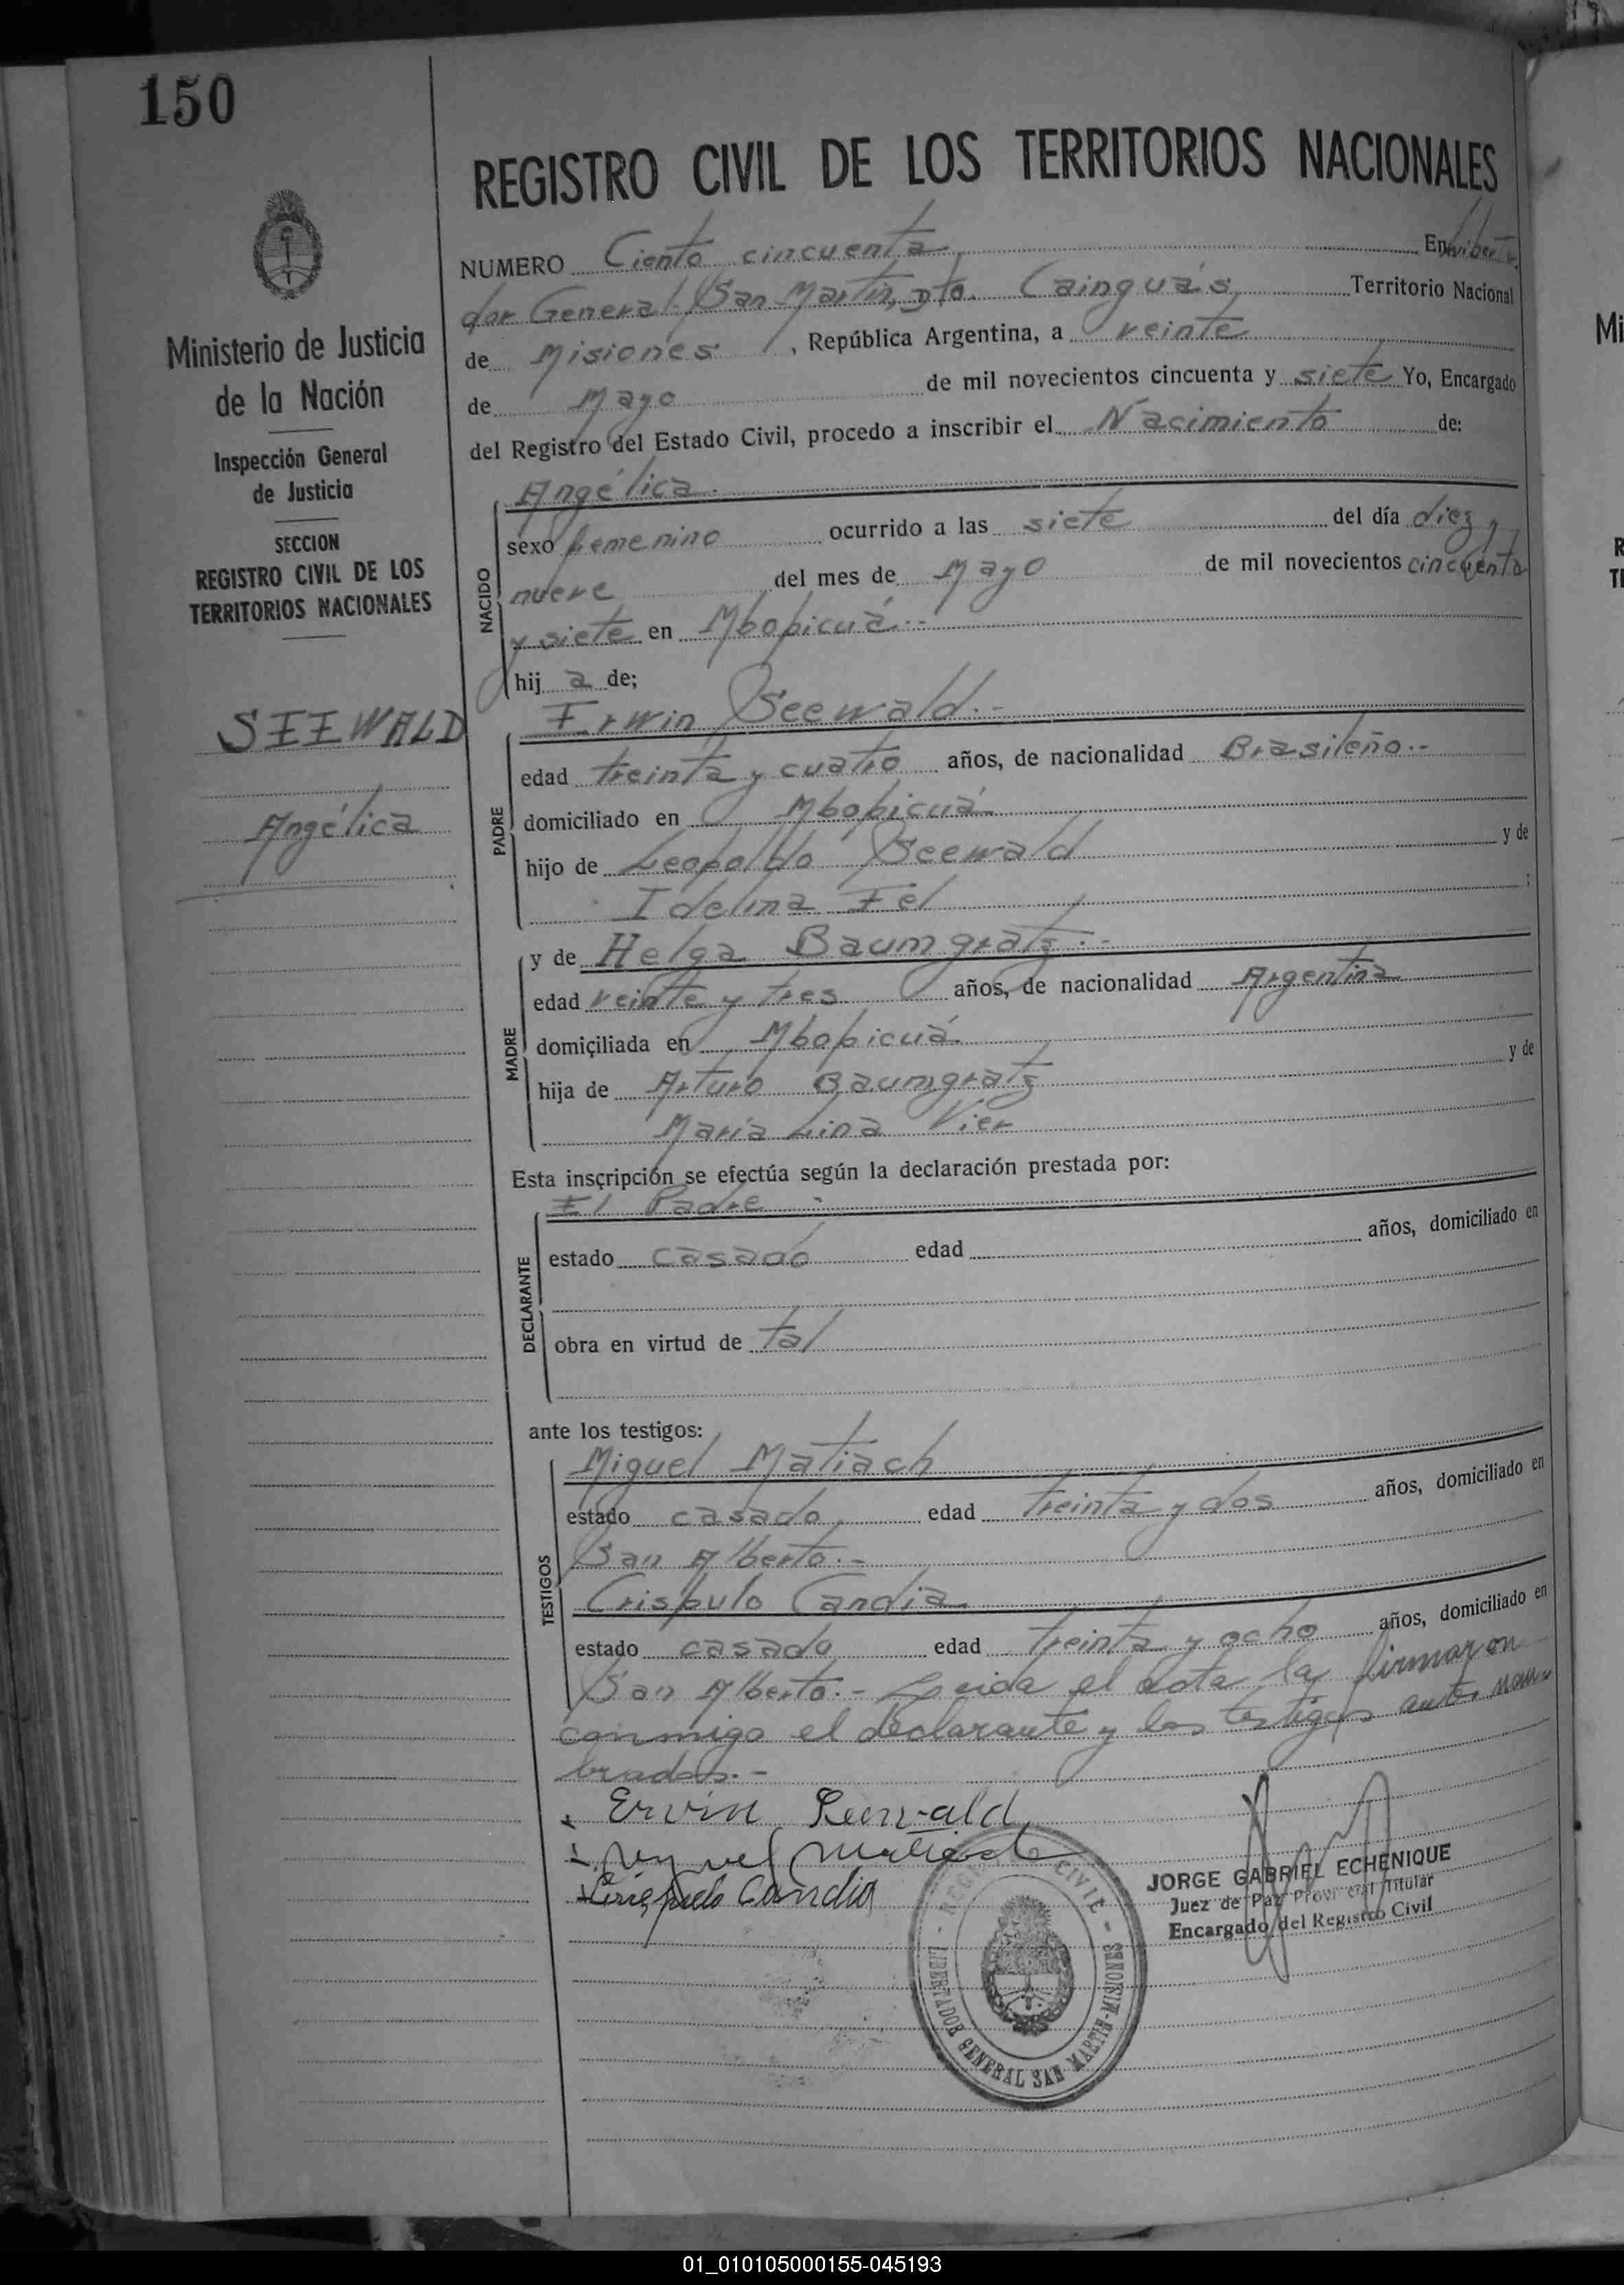 150
REGISTRO CIVIL DE LOS TERRITORIOS NACIONALES
NUMERO Ciento cincuenta En Liberta
dor General San Martin, Dto. Cainguás Territorio Nacional
de Misiones, República Argentina, a veinte
de Mayo de mil novecientos cincuenta y siete Yo, Encargado
del Registro del Estado Civil, procedo a inscribir el Nacimiento de:
Ministerio de Justicia
de la Nación
Inspección General
de Justicia
SECCION
REGISTRO CIVIL DE LOS
TERRITORIOS NACIONALES
SEEWALD
Angélica
NACIDO
Angélica.
sexo femenino ocurrido a las siete del día diez y
nueve del mes de Mayo de mil novecientos cincuenta
y siete en Mbopicuá.-
hij a de;
PADRE
Erwin Seewald.-
edad treinta y cuatro años, de nacionalidad Brasileño.-
domiciliado en Mbopicuá
hijo de Leopoldo Seewald y de
Idelina Fel ;
MADRE
y de Helga Baumgratz.-
edad veinte y tres años, de nacionalidad Argentina
domiciliada en Mbopicuá.
hija de Arturo Baumgratz y de
María Lina Vier
Esta inscripción se efectúa según la declaración prestada por:
DECLARANTE
El Padre
estado casado edad años, domiciliado en
obra en virtud de tal
ante los testigos:
TESTIGOS
Miguel Matiach
estado casado edad treinta y dos años, domiciliado en
San Alberto.-
Crispulo Candia.
estado casado edad treinta y ocho años, domiciliado en
San Alberto.- Leida el acta la firmaron
conmigo el declarante y los testigos antes nom-
brados.-
Ervin Seewald
Miguel Matiach
Crispulo Candia
JORGE GABRIEL ECHENIQUE
Juez de Paz Provincial Titular
Encargado del Registro Civil
REGISTRO CIVIL - LIBERTADOR GENERAL SAN MARTIN - MISIONES
01_010105000155-045193